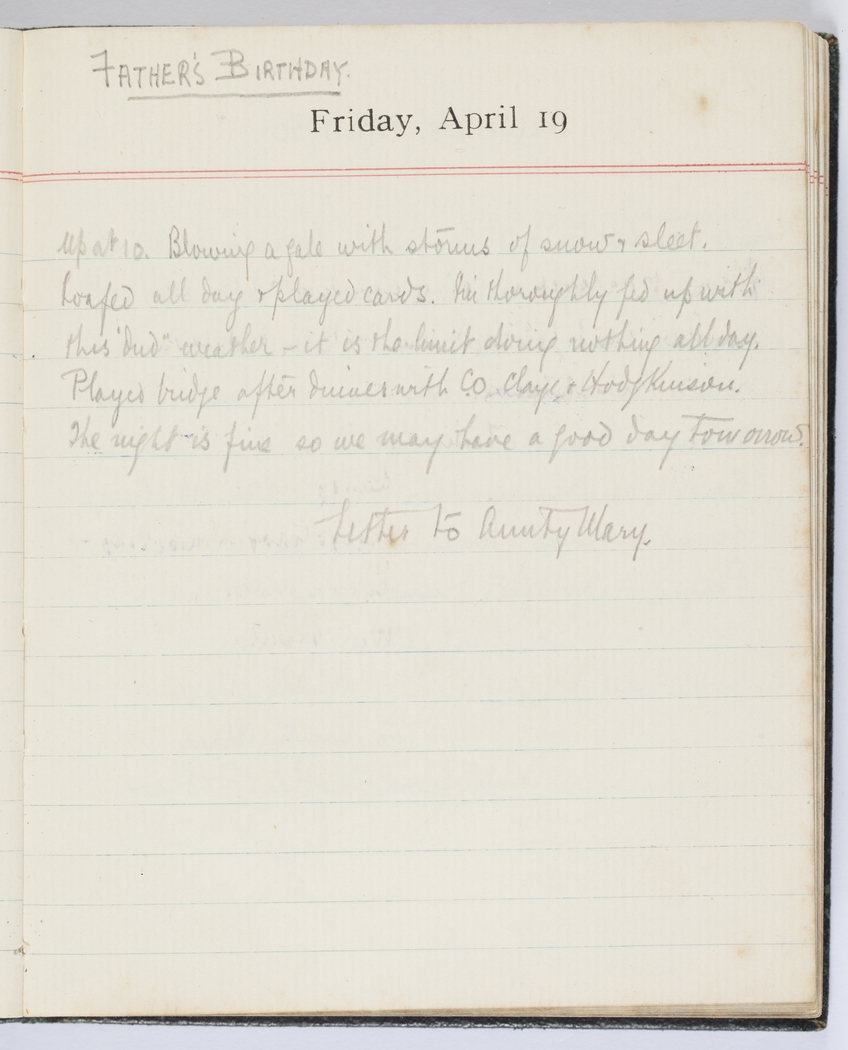 FATHER'S BIRTHDAY.
Friday, April 19
Up at 10. Blowing a gale with storms of snow & sleet.
Loafed all day & played cards. I'm thoroughly fed up with
this "dud" weather – it is the limit doing nothing all day.
Played bridge after dinner with CO. Claye & Hodgkinson.
The night is fine so we may have a good day tomorrow.
Letter to Aunty Mary.